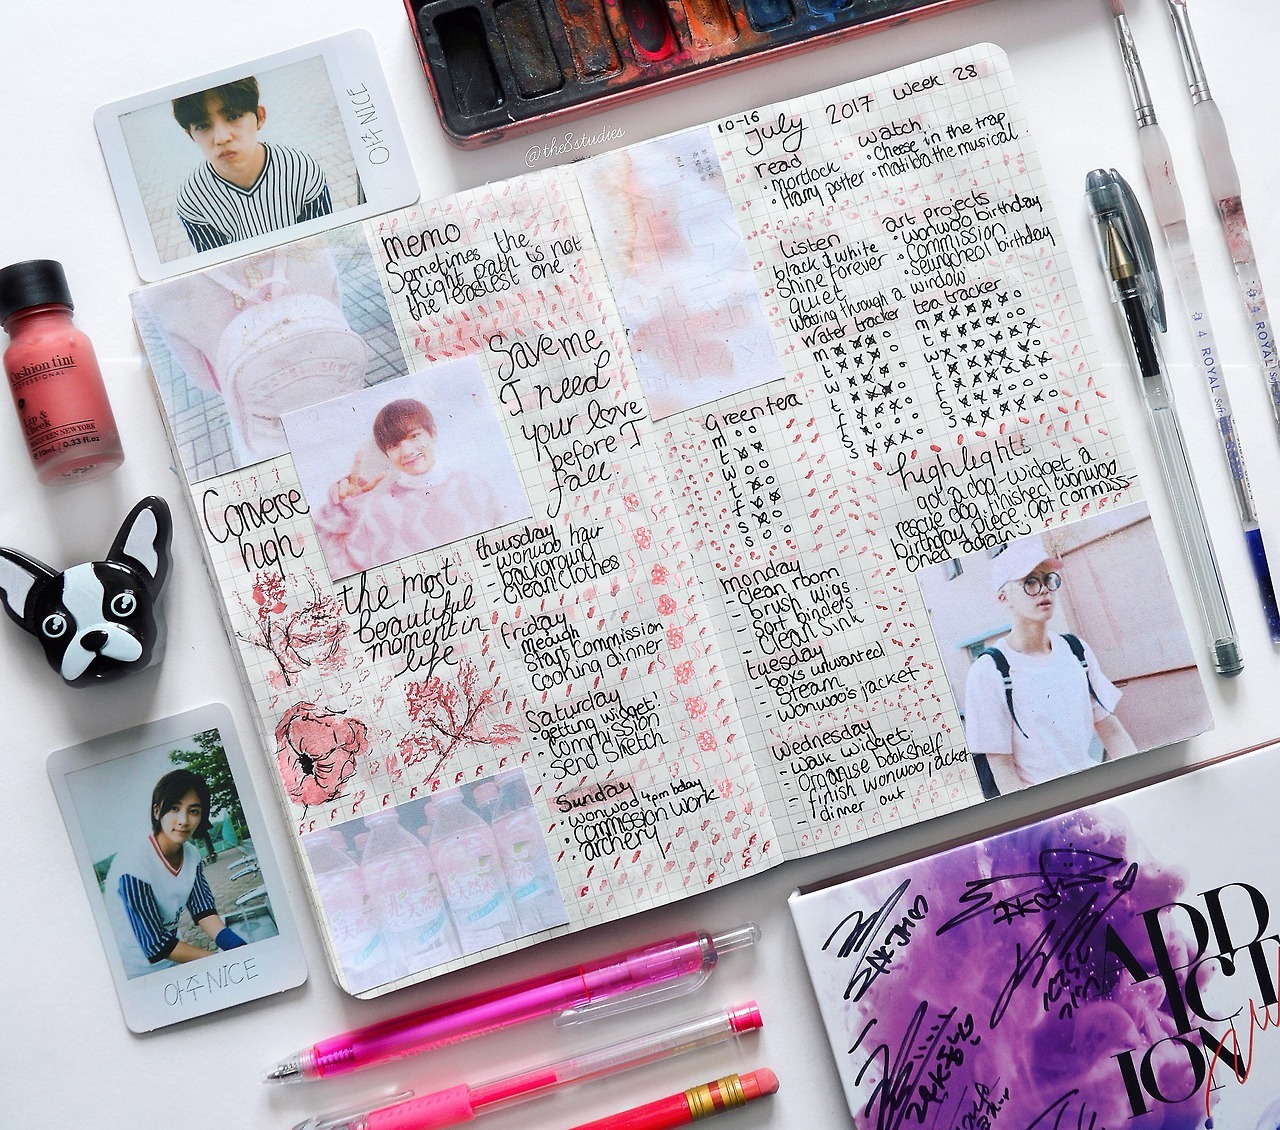 아주NICE
@the8studies
Cushion tint
PROFESSIONAL
Lip &
NEW YORK
/ 0.33 fl.oz
memo
Sometimes the
Right path is not
the easiest one.
Save me
I need
your love
before I
fall
Converse
high
the most
beautiful
moment in
life
thursday
- wonwoo hair
- background
- clean clothes
friday
meeugh
start commission
cooking dinner
Saturday
getting widget!
commission
send sketch
Sunday
wonwoo 4pm bday
commission work
archery
10-16
July 2017 Week 28
read
• Mortlock
• Harry potter
watch
• cheese in the trap
• matilda the musical
Listen
black & white
Shine forever
quiet
Waiting through a window
art projects
• wonwoo birthday
• commission
• seungcheol birthday
Water tracker
m
t
w
t
f
s
s
tea tracker
m
t
w
t
f
s
s
green tea
m
t
w
t
f
s
s
highlights
got a dog-widget a
rescue dog. finished wonwoo
birthday piece. got commiss-
oned again
monday
- clean room
- brush wigs
- sort binders
- clean sink
tuesday
- boxs unwanted
- steam
- wonwoo's jacket
Wednesday
- walk widget
- organise bookshelf
- finish wonwoo jacket
- dinner out
아주NICE
4 ROYAL
4 ROYAL
ADD
ICT
ION